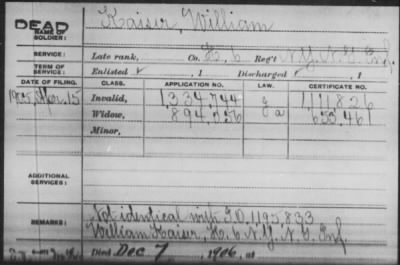 DEAD
NAME OF SOLDIER: Kaiser, William
SERVICE: Late rank, Co. K, 6 Reg't N.Y. N.G. Inf.
TERM OF SERVICE: Enlisted , 1 Discharged , 1
DATE OF FILING. CLASS. APPLICATION NO. LAW. CERTIFICATE NO.
1905, Apr. 15 Invalid, 1,334,744 g 1,111,826
Widow, 894,756 g a 653,461
Minor,
ADDITIONAL SERVICES:
REMARKS: Not identical with I.O. 1195833
William Kaiser, K. 6 N.Y. N.G. Inf.
Died Dec 7, 1906, at